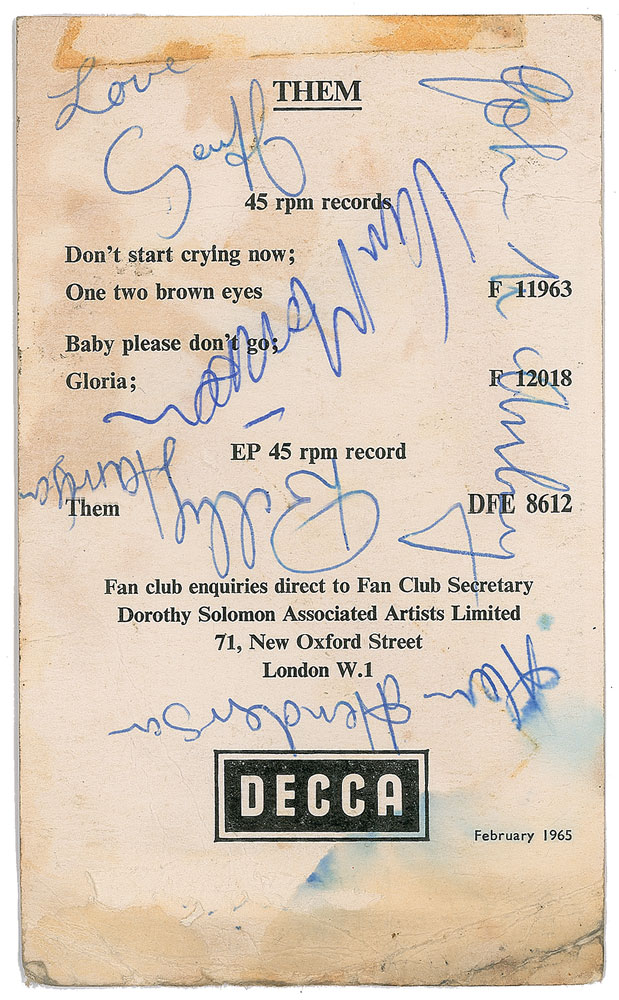 Love
Geoff
THEM
45 rpm records
Don't start crying now;
One two brown eyes F 11963
Baby please don't go;
Gloria; F 12018
Van Morrison
John McAuley
EP 45 rpm record
Them DFE 8612
Billy Harrison
Fan club enquiries direct to Fan Club Secretary
Dorothy Solomon Associated Artists Limited
71, New Oxford Street
London W.1
Alan Henderson
DECCA
February 1965